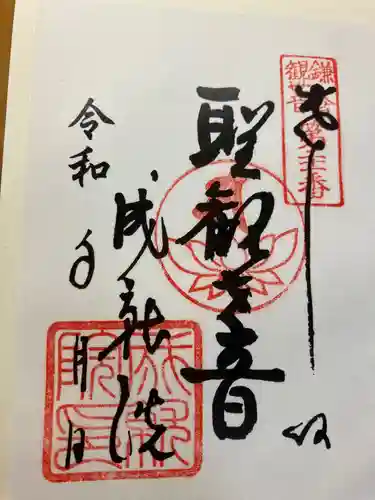 鎌倉
観世音
奉拝
聖観世音
成就院
令和 年 月 日
成就
院印